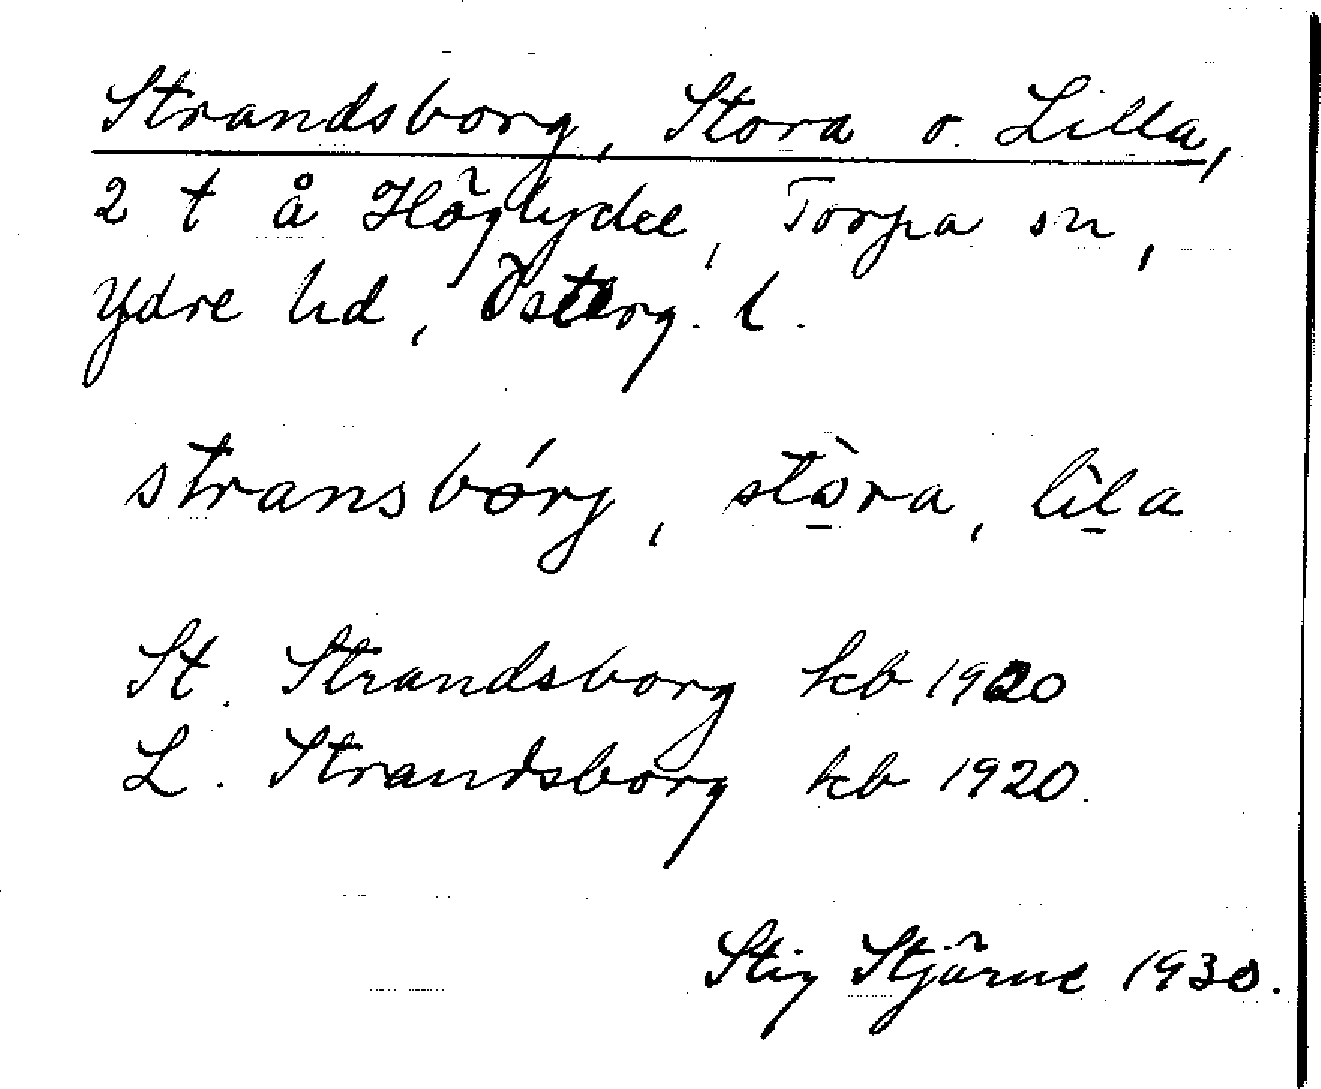 Strandsborg, Stora o. Lilla,
2 t å Höglycke, Torpa sn,
Ydre hd, Österg. l.
stransbórj, stò̲ra, lìl̲a
St. Strandsborg kb 1920
L. Strandsborg kb 1920.
Stig Stjärne 1930.